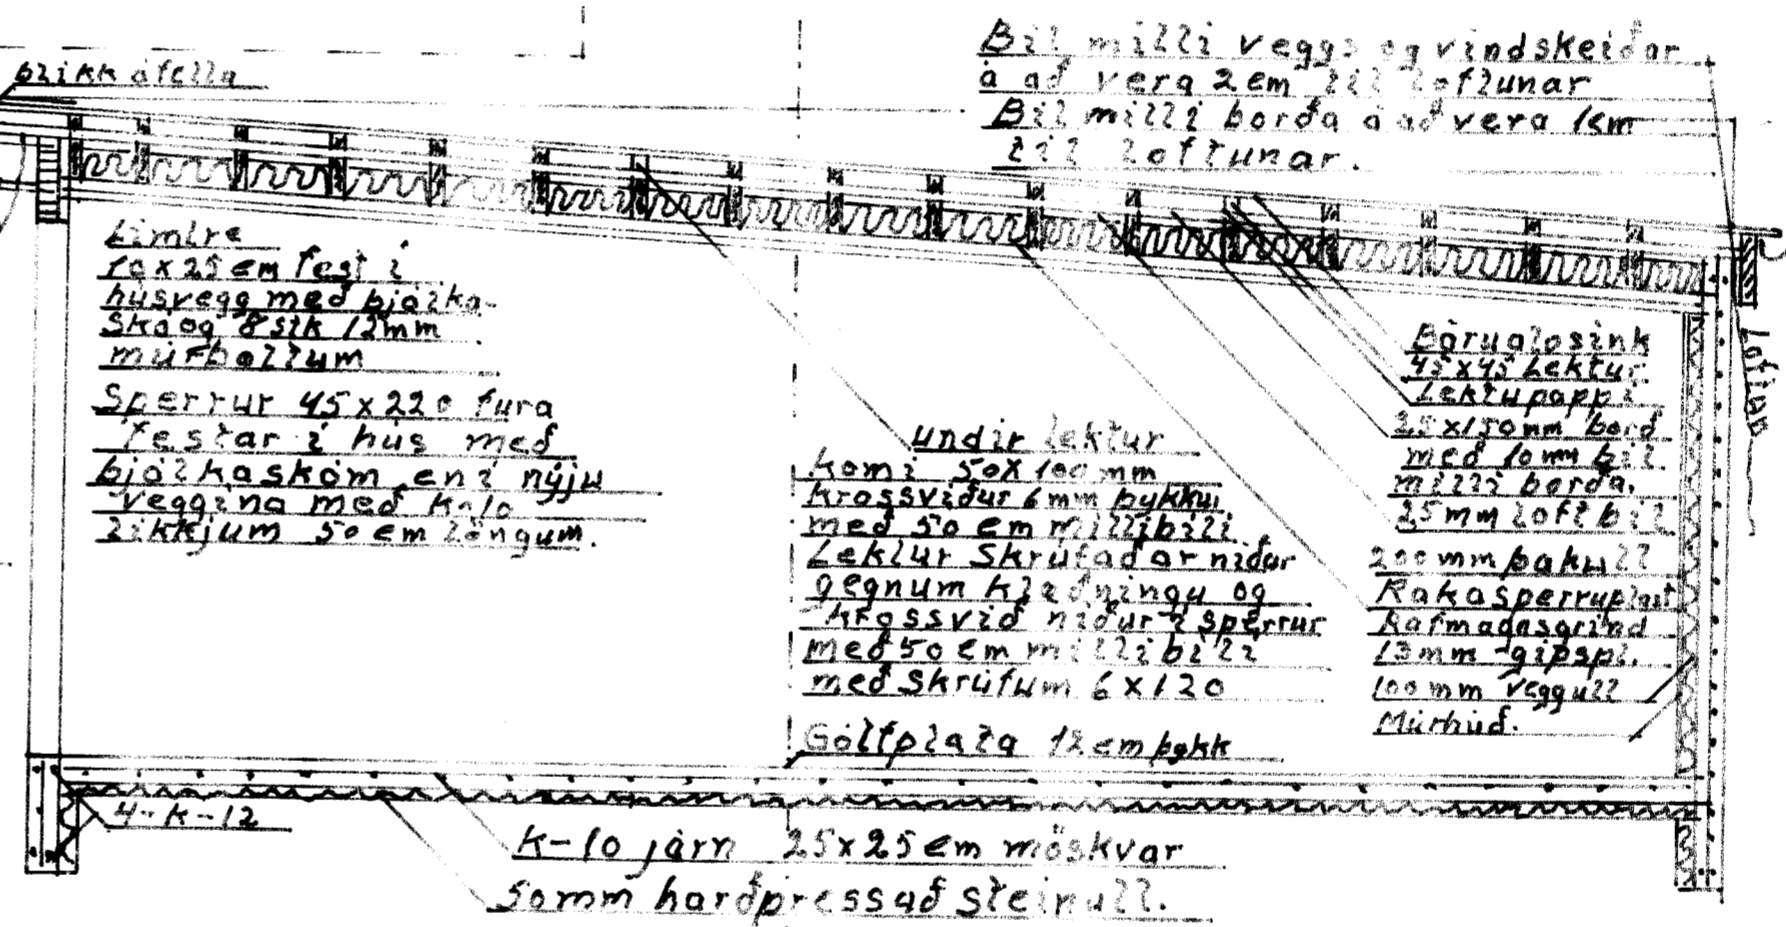 Blikk áfella
Bil milli veggs og vindskeiðar
á að vera 2 cm til loftunar
Bil milli borða á að vera 1cm
til loftunar.
Límtre
10x25 cm fest í
húsvegg með bjálka-
skó og 8 stk 12mm
múrboltum
Sperrur 45x220 fura
festar í hús með
bjálkaskóm en í nýju
veggina með K-10
likkjum 50 cm löngum.
undir lektur
komi 50x100 mm
krossviður 6 mm þykkur
með 50 cm millibili.
Lektur skrúfaðar niður
gegnum klæðningu og
krossvið niður í sperrur
með 50 cm millibili
með skrúfum 6x120
Bárualosink
45x45 Lektur
Lektupappi
25x150 mm borð
með 10 mm bil
milli borða.
25mm loftbil
200 mm þakull
Rakasperruplast
Rafmagnsgrind
13mm gipspl.
100 mm veggull
Múrhúð.
Loftun
Gólfplata 12 cm þykk
4-K-12
K-10 járn 25x25 cm möskvar
50mm harðpressað steinull.